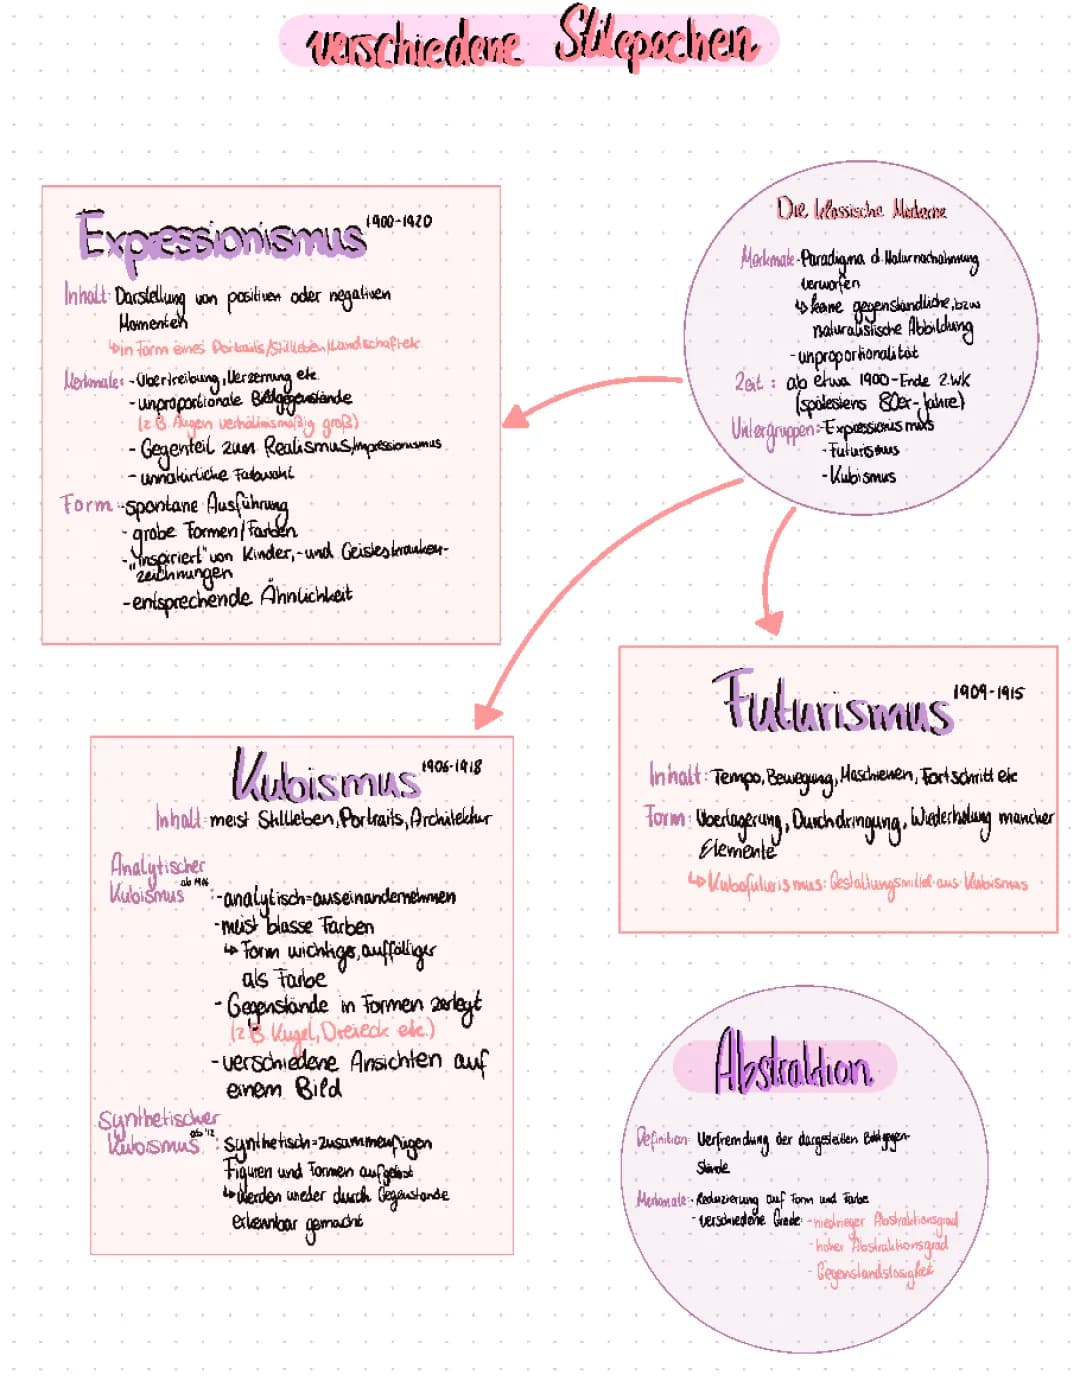 verschiedene Stilepochen
Expressionismus 1900-1920
Inhalt: Darstellung von positiven oder negativen
Momenten
↳in Form eines Portraits/Stilleben/Landschaft etc.
Merkmale: -Übertreibung, Verzerrung etc.
-unproportionale Bildgegenstände
(z.B. Augen verhältnismäßig groß)
- Gegenteil zum Realismus/Impressionismus
- unnatürliche Farbwahl
Form: -spontane Ausführung
- grobe Formen/Farben
-"inspiriert" von Kinder,-und Geisteskranken-
zeichnungen
-entsprechende Ähnlichkeit
Die klassische Moderne
Merkmale-Paradigma d. Naturnachahmung
verworfen
↳keine gegenständliche, bzw
naturalistische Abbildung
-unproportionalität
Zeit: ab etwa 1900-Ende 2.WK
(spätestens 80er-Jahre)
Untergruppen:-Expressionismus
-Futurismus
-Kubismus
Kubismus 1906-1918
Inhalt: meist Stillleben, Portraits, Architektur
Analytischer
Kubismus ab 1906 :-analytisch=auseinandernehmen
-meist blasse Farben
↳Form wichtiger, auffälliger
als Farbe
- Gegenstände in Formen zerlegt
(z.B. Kugel, Dreieck etc.)
-verschiedene Ansichten auf
einem Bild
Synthetischer
Kubismus ab '12 : synthetisch=zusammenfügen
Figuren und Formen aufgelöst
↳werden wieder durch Gegenstände
erkennbar gemacht
Futurismus 1909-1915
Inhalt: Tempo, Bewegung, Maschienen, Fortschritt etc
Form: Überlagerung, Durchdringung, Wiederholung mancher
Elemente
↳Kubofuturismus: Gestaltungsmittel aus Kubismus
Abstraktion
Definition: Verfremdung der dargestellten Bildgegen-
stände
Merkmale:- Reduzierung auf Form und Farbe
- verschiedene Grade: -niedrieger Abstraktionsgrad
-hoher Abstraktionsgrad
- Gegenstandslosigkeit